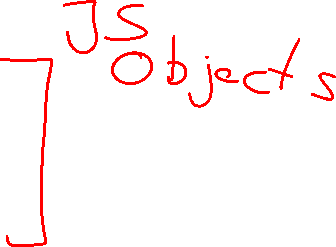 JS
Objects